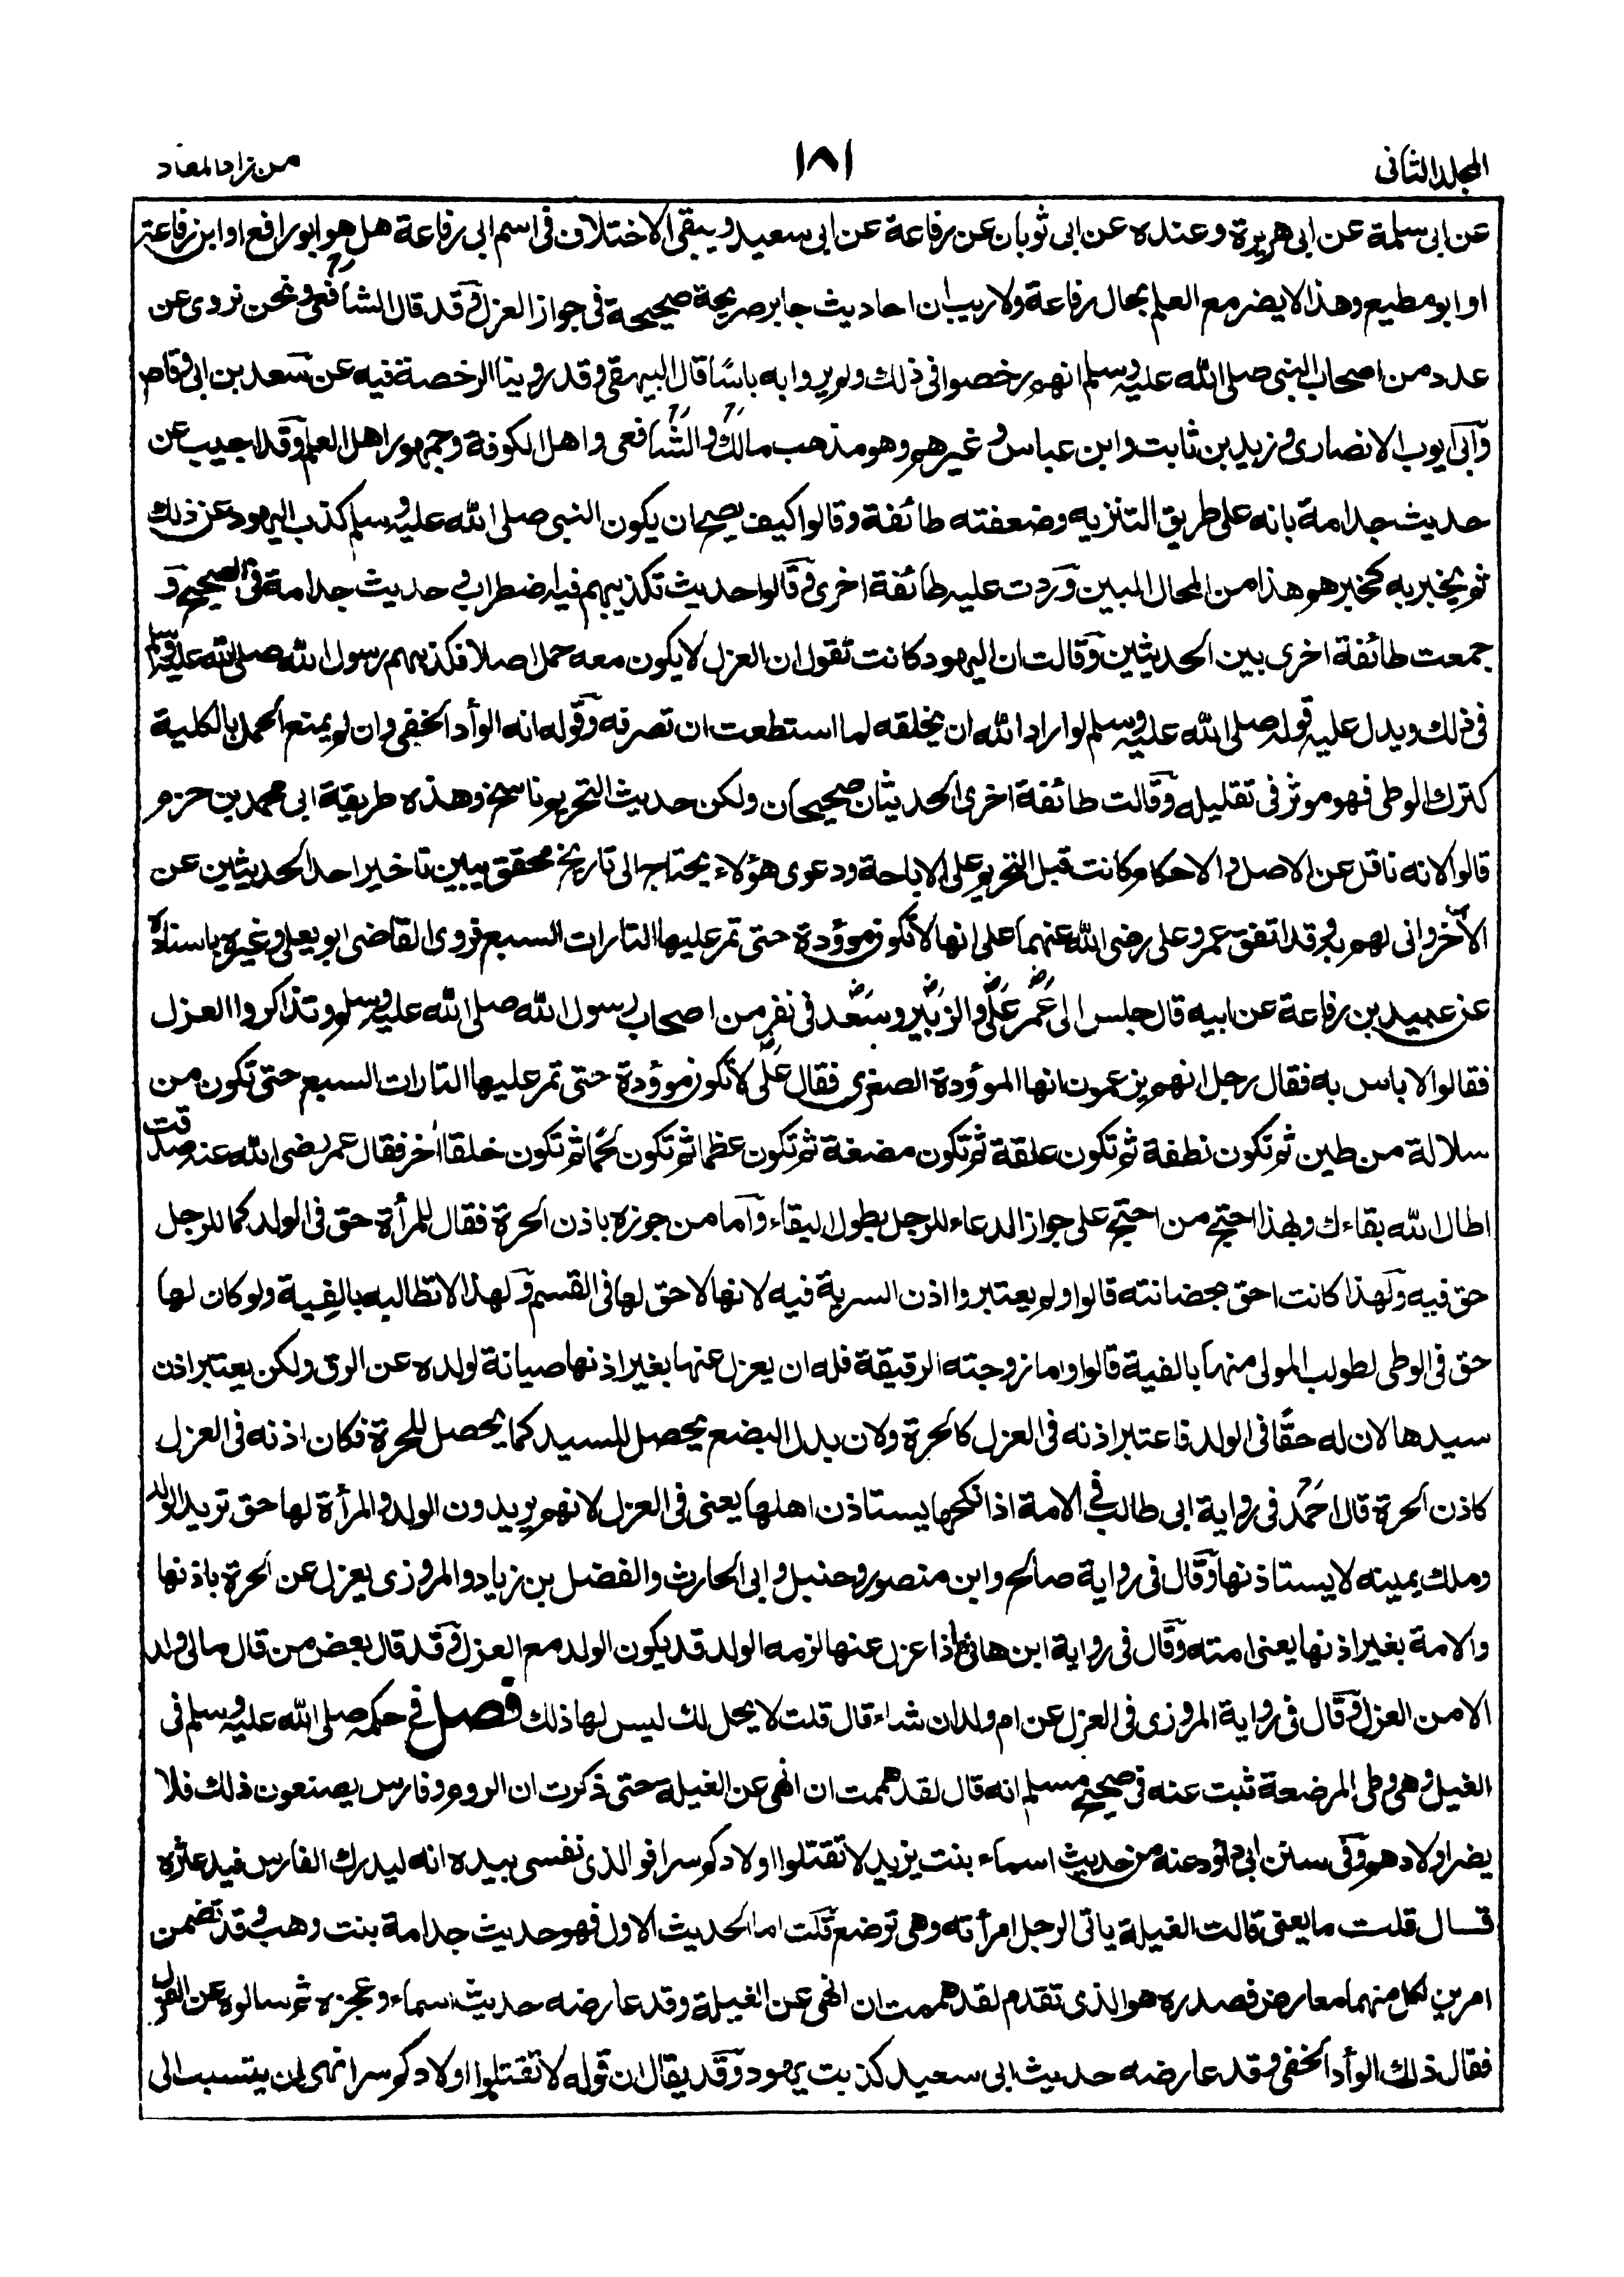 المجلد الثانى
١٨١
من زاد المعاد
عن ابى سلمة عن ابى هريرة وعنده عن ابى ثوبان عن رفاعة عن ابى سعيد ويبقى الاختلاف فى اسم ابى رفاعة هل هو ابو رافع او ابن رفاعة
او ابو مطيع وهذا لا يضر مع العلم بحال رفاعة ولا ريب ان احاديث جابر صريحة صحيحة فى جواز العزل وقد قال الشافعى ونحن نروى عن
عدد من اصحاب النبى صلى الله عليه وسلم انهم رخصوا فى ذلك ولم يروا به باسًا قال البيهقى وقد روينا الرخصة فيه عن سعد بن ابى وقاص
وابى ايوب الانصارى وزيد بن ثابت وابن عباس وغيرهم وهو مذهب مالك والشافعى واهل الكوفة وجمهور اهل العلم وقد اجيب عن
حديث جدامة بانه على طريق التنزيه وضعفته طائفة وقالوا كيف يصح ان يكون النبى صلى الله عليه وسلم كذب اليهود عن ذلك
ثم يخبر به كخبرهم هذا من المحال المبين وردت عليه طائفة اخرى وقالوا حديث تكذيبهم فيه اضطراب و حديث جدامة فى الصحيح و
جمعت طائفة اخرى بين الحديثين وقالت ان اليهود كانت تقول ان العزل لا يكون معه حمل اصلا فكذبهم رسول الله صلى الله عليه وسلم
فى ذلك ويدل عليه قوله صلى الله عليه وسلم لو اراد الله ان يخلقه لما استطعت ان تصرفه وقوله انه الوأد الخفى وان لم يمنع الحمل بالكلية
كترك الوطى فهو موثر فى تقليله وقالت طائفة اخرى الحديثان صحيحان ولكن حديث التحريم ناسخ وهذه طريقة ابى محمد بن حزم
قالوا لانه ناقل عن الاصل والاحكام كانت قبل التحريم على الاباحة ودعوى هؤلاء يحتاج الى تاريخ محقق يبين تاخير احد الحديثين عن
الآخر وانى لهم به وقد اتفق عمر وعلى رضى الله عنهما على انها لا تكون موؤدة حتى تمر عليها التارات السبع فروى القاضى ابو يعلى وغيره باسناده
عن عبيد بن رفاعة عن ابيه قال جلس الى عمر على والزبير وسعد فى نفر من اصحاب رسول الله صلى الله عليه وسلم وتذاكروا العزل
فقالوا لا باس به فقال رجل انهم يزعمون انها الموؤدة الصغرى فقال على لا تكون موؤدة حتى تمر عليها التارات السبع حتى تكون من
سلالة من طين ثم تكون نطفة ثم تكون علقة ثم تكون مضغة ثم تكون عظما ثم تكون لحما ثم تكون خلقا اخر فقال عمر رضى الله عنه صدقت
اطال الله بقاءك وبهذا احتج من احتج على جواز الدعاء للرجل بطول البقاء وآما من جوزه باذن الحرة فقال للمرأة حق فى الولد كما للرجل
حق فيه ولهذا كانت احق بحضانته قالوا ولم يعتبروا اذن السرية فيه لانها لا حق لها فى القسم ولهذا لا تطالبه بالفيئة ولو كان لها
حق فى الوطى لطولب المولى منها بالفيئة قالوا واما زوجته الرقيقة فله ان يعزل عنها بغير اذنها صيانة لولده عن الرق ولكن يعتبر اذن
سيدها لان له حقًّا فى الولد فاعتبر اذنه فى العزل كالحرة ولان بدل البضع يحصل للسيد كما يحصل للحرة فكان اذنه فى العزل
كاذن الحرة قال احمد فى رواية ابى طالب فى الامة اذا نكحها يستاذن اهلها يعنى فى العزل لانهم يريدون الولد والمرأة لها حق تريد الولد
وملك يمينه لا يستاذنها وقال فى رواية صالح وابن منصور وحنبل وابى الحارث والفضل بن زياد والمروزى يعزل عن الحرة باذنها
والامة بغير اذنها يعنى امته وقال فى رواية ابن هانئ اذا عزل عنها لزمه الولد قد يكون الولد مع العزل وقد قال بعض من قال مالى ولد
الا من العزل وقال فى رواية المروزى فى العزل عن ام ولد ان شاء قال قلت لا يحل لك ليس لها ذلك فصل فى حكمه صلى الله عليه وسلم فى
الغيل وهى وطى المرضعة ثبت عنه فى صحيح مسلم انه قال لقد هممت ان انهى عن الغيلة حتى ذكرت ان الروم وفارس يصنعون ذلك فلا
يضر اولادهم وفى سنن ابى داؤد عنه من حديث اسماء بنت يزيد لا تقتلوا اولادكم سرا فو الذى نفسى بيده انه ليدرك الفارس فيدعثره
قال قلت ما يعنى قالت الغيلة ياتى الرجل امرأته وهى توضع قلت اما الحديث الاول فهو حديث جدامة بنت وهب وقد تضمن
امرين لكل منهما معارض فصدره هو الذى تقدم لقد هممت ان انهى عن الغيلة وقد عارضه حديث اسماء وعجزه ثم سالوه عن العزل
فقال ذلك الوأد الخفى وقد عارضه حديث ابى سعيد كذبت يهود وقد يقال ان قوله لا تقتلوا اولادكم سرا نهى ان يتسبب الى